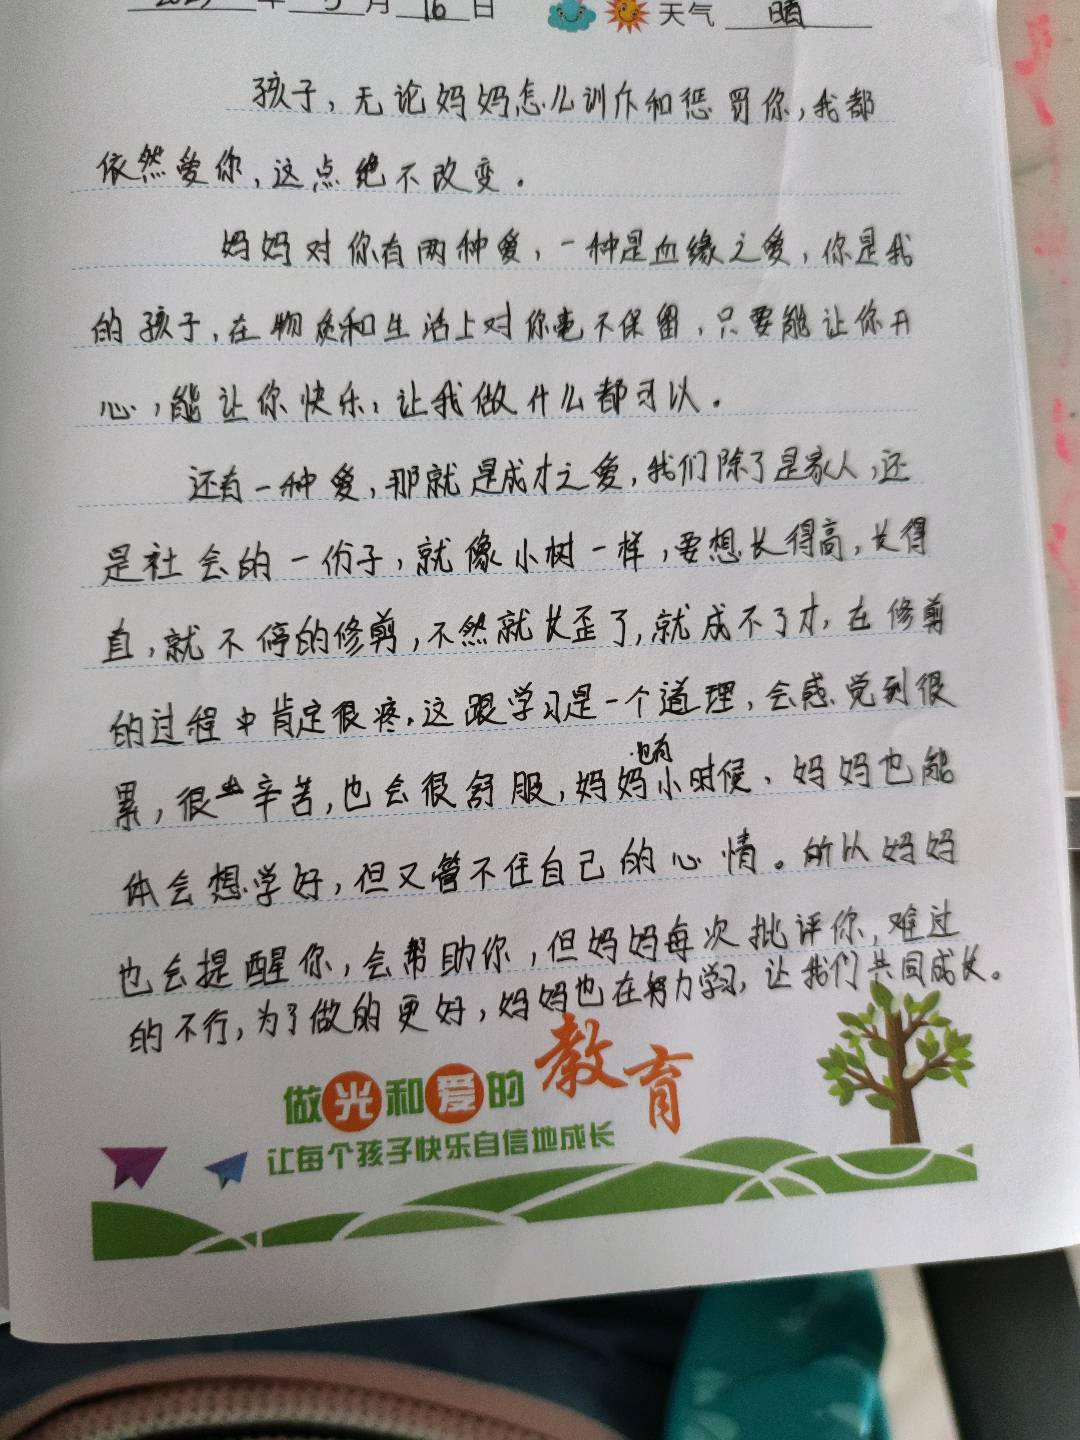 年 5 月 16 日 天气 晴
孩子，无论妈妈怎么训斥和惩罚你，我都
依然爱你，这点绝不改变。
妈妈对你有两种爱，一种是血缘之爱，你是我
的孩子，在物质和生活上对你毫不保留，只要能让你开
心，能让你快乐，让我做什么都可以。
还有一种爱，那就是成才之爱，我们除了是家人，还
是社会的一份子，就像小树一样，要想长得高，长得
直，就不停的修剪，不然就长歪了，就成不了才，在修剪
的过程中肯定很疼，这跟学习是一个道理，会感觉到很
累，很辛苦，也会很舒服，妈妈也有小时候，妈妈也能
体会想学好，但又管不住自己的心情。所以妈妈
也会提醒你，会帮助你，但妈妈每次批评你，难过
的不行，为了做的更好，妈妈也在努力学习，让我们共同成长。
做光和爱的教育
让每个孩子快乐自信地成长